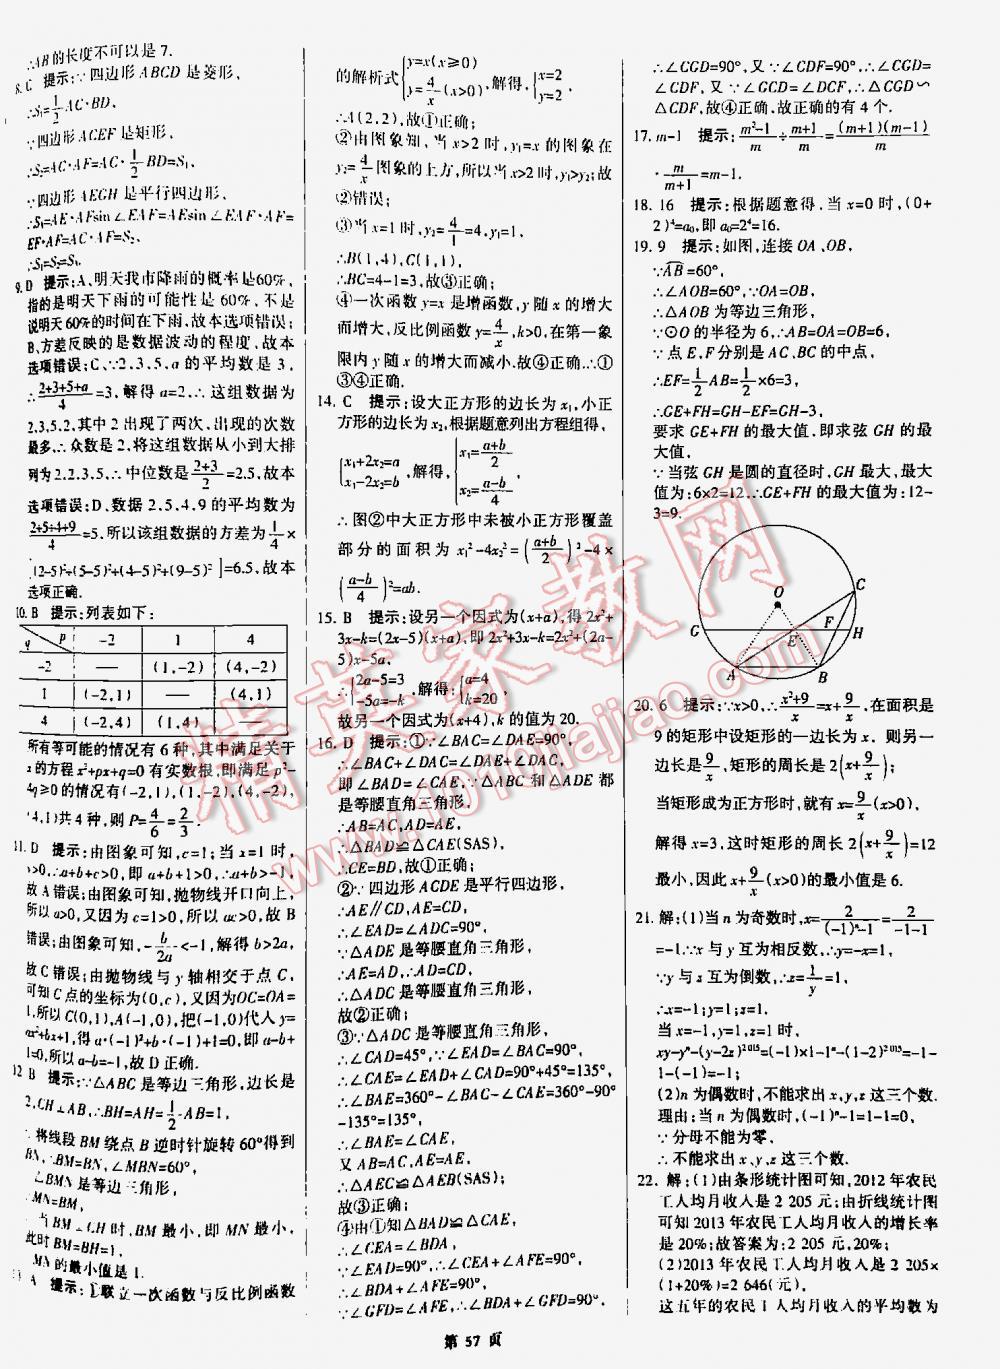 ∴AB的长度不可以是7.
8. C 提示:∵四边形ABCD是菱形,
∴S₁=1/2 AC·BD,
∵四边形ACEF是矩形,
∴S₂=AC·AF=AC·1/2 BD=S₁,
∵四边形AEGH是平行四边形,
∴S₃=AE·AFsin∠EAF=AEsin∠EAF·AF=
EF·AF=AC·AF=S₂,
∴S₁=S₂=S₃.
9. D 提示:A、明天我市降雨的概率是60%,
指的是明天下雨的可能性是60%,不是
说明天60%的时间在下雨,故本选项错误;
B、方差反映的是数据波动的程度,故本
选项错误;C、∵2,3,5,a的平均数是3,
∴(2+3+5+a)/4=3,解得a=2,∴这组数据为
2,3,5,2,其中2出现了两次,出现的次数
最多,∴众数是2,将这组数据从小到大排
列为2,2,3,5,∴中位数是(2+3)/2=2.5,故本
选项错误;D、数据2,5,4,9的平均数为
(2+5+4+9)/4=5,所以该组数据的方差为1/4×
[(2-5)²+(5-5)²+(4-5)²+(9-5)²]=6.5,故本
选项正确.
10. B 提示:列表如下:
q p -2 1 4
-2 —— (1,-2) (4,-2)
1 (-2,1) —— (4,1)
4 (-2,4) (1,4) ——
所有等可能的情况有6种,其中满足关于
x的方程x²+px+q=0有实数根,即满足p²-
4q≥0的情况有(-2,1),(1,-2),(4,-2),
(4,1)共4种,则P=4/6=2/3.
11. D 提示:由图象可知,c=1;当x=1时,
y>0,∴a+b+c>0,即a+b+1>0,∴a+b>-1,
故A错误;由图象可知,抛物线开口向上,
所以a>0,又因为c=1>0,所以ac>0,故B
错误;由图象可知,-b/2a<-1,解得b>2a,
故C错误;由抛物线与y轴相交于点C,
可知C点的坐标为(0,c),又因为OC=OA=
1,所以C(0,1),A(-1,0),把(-1,0)代入y=
ax²+bx+1,得a·(-1)²+b·(-1)+1=0,即a-b+
1=0,所以a-b=-1,故D正确.
12 B 提示:∵△ABC是等边三角形,边长是
2,CH⊥AB,∴BH=AH=1/2 AB=1,
∵将线段BM绕点B逆时针旋转60°得到
BN,∴BM=BN,∠MBN=60°,
∴△BMN是等边三角形,
∴MN=BM,
∴当BM⊥CH时,BM最小,即MN最小,
此时BM=BH=1,
∴MN的最小值是1.
13 A 提示:①联立一次函数与反比例函数
的解析式{y=x(x≥0) y=4/x(x>0),解得,{x=2 y=2,
∴A(2,2),故①正确;
②由图象知,当x>2时,y₁=x的图象在
y₂=4/x图象的上方,所以当x>2时,y₁>y₂;故
②错误;
③当x=1时,y₂=4/1=4,y₁=1,
∴B(1,4),C(1,1),
∴BC=4-1=3,故③正确;
④一次函数y=x是增函数,y随x的增大
而增大,反比例函数y=4/x,k>0,在第一象
限内y随x的增大而减小.故④正确.∴①
③④正确.
14. C 提示:设大正方形的边长为x₁,小正
方形的边长为x₂,根据题意列出方程组得,
{x₁+2x₂=a x₁-2x₂=b,解得,{x₁=(a+b)/2 x₂=(a-b)/4
∴图②中大正方形中未被小正方形覆盖
部分的面积为x₁²-4x₂²=((a+b)/2)²-4×
((a-b)/4)²=ab.
15. B 提示:设另一个因式为(x+a),得2x²+
3x-k=(2x-5)(x+a),即2x²+3x-k=2x²+(2a-
5)x-5a,
∴{2a-5=3 -5a=-k,解得:{a=4 k=20,
故另一个因式为(x+4),k的值为20.
16. D 提示:①∵∠BAC=∠DAE=90°,
∴∠BAC+∠DAC=∠DAE+∠DAC,
即∠BAD=∠CAE,∵△ABC和△ADE都
是等腰直角三角形,
∴AB=AC,AD=AE,
∴△BAD≌△CAE(SAS),
∴CE=BD,故①正确;
②∵四边形ACDE是平行四边形,
∴AE∥CD,AE=CD,
∴∠EAD=∠ADC=90°,
∵△ADE是等腰直角三角形,
∴AE=AD,∴AD=CD,
∴△ADC是等腰直角三角形,
故②正确;
③∵△ADC是等腰直角三角形,
∴∠CAD=45°,∵∠EAD=∠BAC=90°,
∴∠CAE=∠EAD+∠CAD=90°+45°=135°,
∴∠BAE=360°-∠BAC-∠CAE=360°-
90°-135°=135°,
∴∠BAE=∠CAE,
又AB=AC,AE=AE,
∴△BAE≌△CAE(SAS);
故③正确;
④由①知△BAD≌△CAE,
∴∠CEA=∠BDA,
∵∠AEF+∠CED=∠CEA+∠AFE=90°,
∵∠GFD=∠AFE,∴∠BDA+∠GFD=90°,
∴∠CGD=90°,又∵∠CDF=90°,∴∠CGD=
∠CDF,又∵∠GCD=∠DCF,∴△CGD∽
△CDF,故④正确.故正确的有4个.
17. m-1 提示:(m²-1)/m÷(m+1)/m=(m+1)(m-1)/m
·m/(m+1)=m-1.
18. 16 提示:根据题意得,当x=0时,(0+
2)⁴=a₀,即a₀=2⁴=16.
19. 9 提示:如图,连接OA、OB,
∵AB=60°,
∴∠AOB=60°,∵OA=OB,
∴△AOB为等边三角形,
∵⊙O的半径为6,∴AB=OA=OB=6,
∵点E,F分别是AC、BC的中点,
∴EF=1/2 AB=1/2×6=3,
∴GE+FH=GH-EF=GH-3,
要求GE+FH的最大值,即求弦GH的最
大值,
∵当弦GH是圆的直径时,GH最大,最大
值为:6×2=12,∴GE+FH的最大值为:12-
3=9.
O C G E F H A B
20. 6 提示:∵x>0,∴(x²+9)/x=x+9/x,在面积是
9的矩形中设矩形的一边长为x,则另一
边长是9/x,矩形的周长是2(x+9/x);
当矩形成为正方形时,就有x=9/x(x>0),
解得x=3,这时矩形的周长2(x+9/x)=12
最小,因此x+9/x(x>0)的最小值是6.
21. 解:(1)当n为奇数时,x=2/((-1)ⁿ-1)=2/(-1-1)
=-1.∵x与y互为相反数,∴y=-x=1,
∵y与z互为倒数,∴z=1/y=1,
∴x=-1;y=1;z=1.
当x=-1,y=1,z=1时,
xy-yⁿ-(y-2z)²⁰¹⁵=(-1)×1-1ⁿ-(1-2)²⁰¹⁵=-1-
1-(-1)=-1.
(2)n为偶数时,不能求出x,y,z这三个数.
理由:当n为偶数时,(-1)ⁿ-1=1-1=0,
∵分母不能为零,
∴不能求出x、y、z这三个数.
22. 解:(1)由条形统计图可知,2012年农民
工人均月收入是2 205元;由折线统计图
可知2013年农民工人均月收入的增长率
是20%;故答案为:2 205元,20%;
(2)2013年农民工人均月收入是2 205×
(1+20%)=2 646(元),
这五年的农民工人均月收入的平均数为
第 57 页
精英家教网
www.1010jiajiao.com